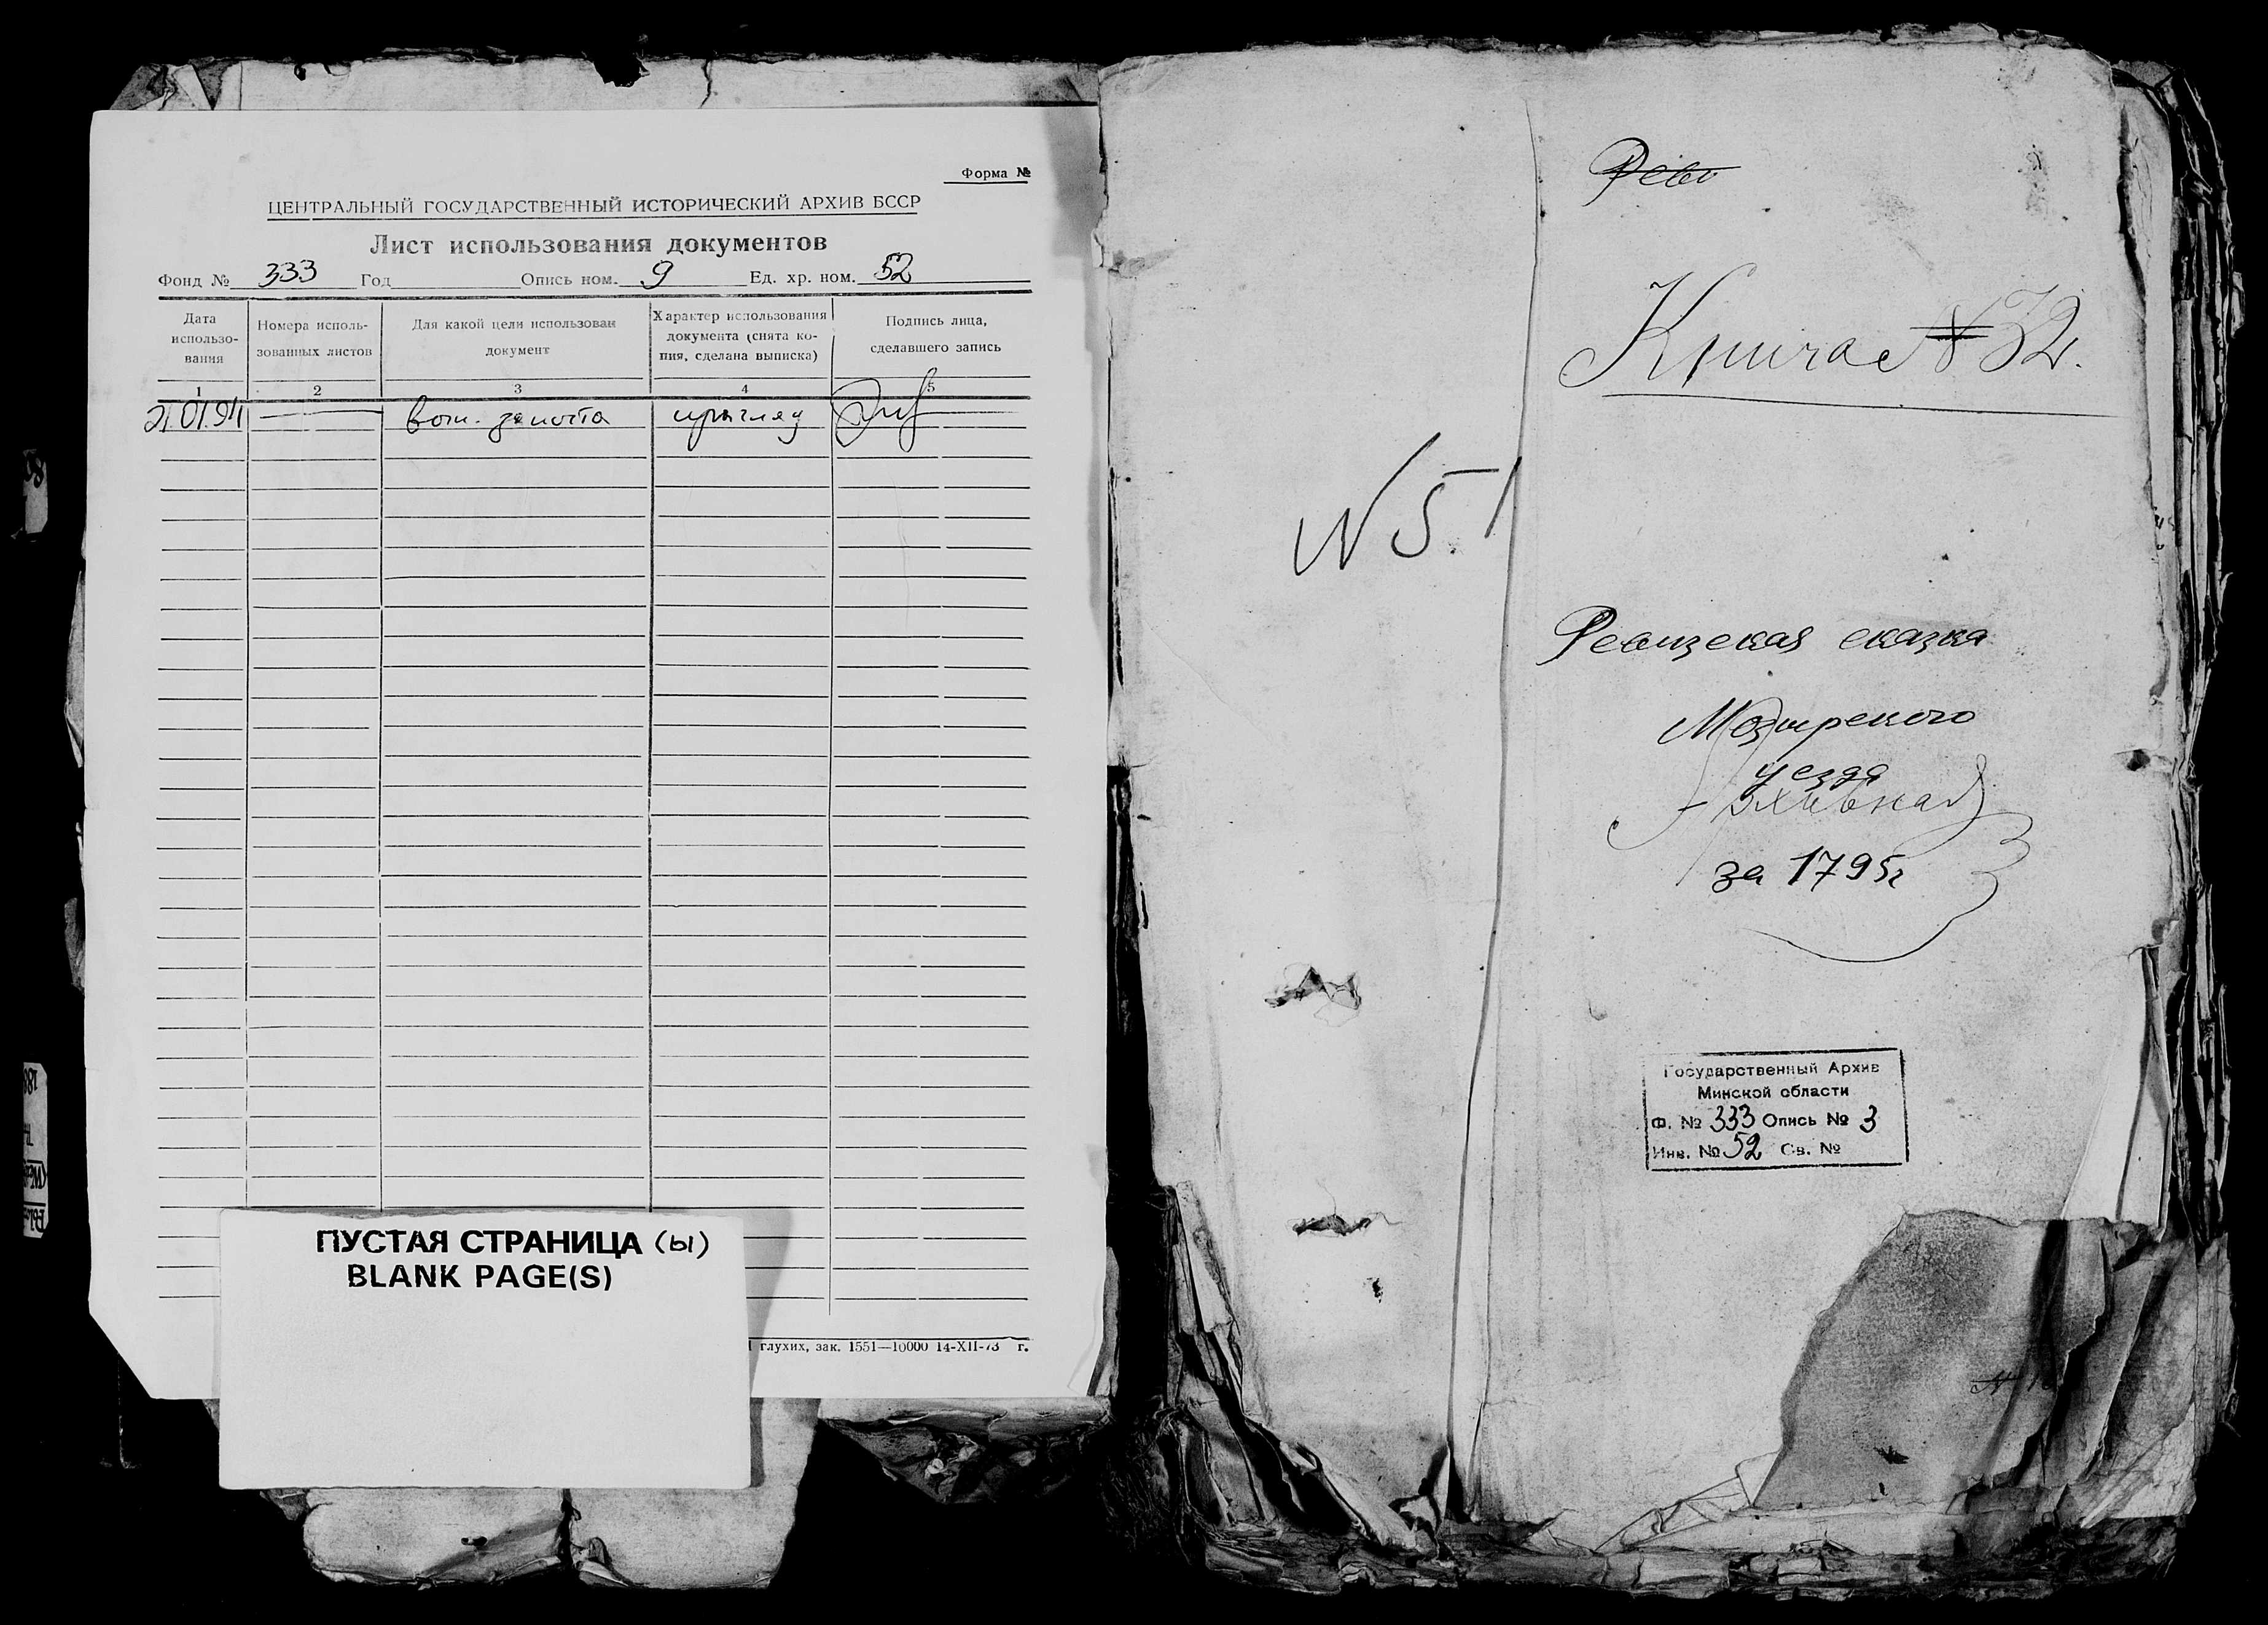 Форма №
ЦЕНТРАЛЬНЫЙ ГОСУДАРСТВЕННЫЙ ИСТОРИЧЕСКИЙ АРХИВ БССР
Лист использования документов
Фонд № 333 Год Опись ном. 9 Ед. хр. ном. 52
Дата использо-вания
Номера исполь-зованных листов
Для какой цели использован документ
Характер использования документа (снята ко-пия, сделана выписка)
Подпись лица, сделавшего запись
1 2 3 4 5
21.01.94
ПУСТАЯ СТРАНИЦА (ы)
BLANK PAGE(S)
глухих, зак. 1551—10000 14-XII-73 г.
Реви
Книга № 32.
N 51
Ревизская сказка
Мозырского
уезда
Архивная
за 1795г
Государственный Архив
Минской области
Ф. № 333 Опись № 3
Инв. № 52 Св. №